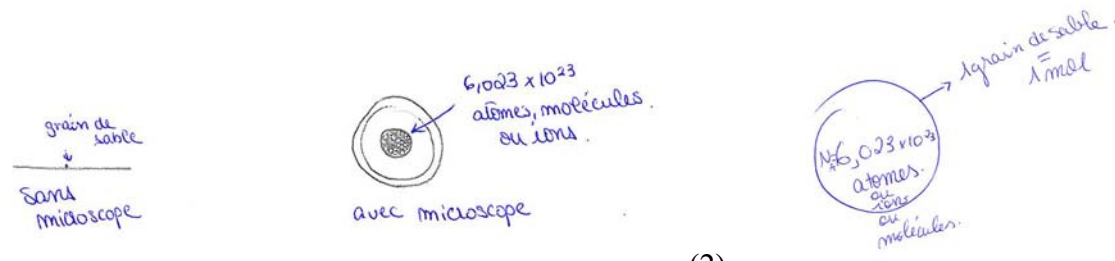 grain de
sable
sans
microscope
6,023 x 10²³
atomes, molécules.
ou ions.
avec microscope
1 grain de sable.
=
1 mol
N=6,023 x 10²³
atomes.
ou
ions
ou
molécules.
(2)